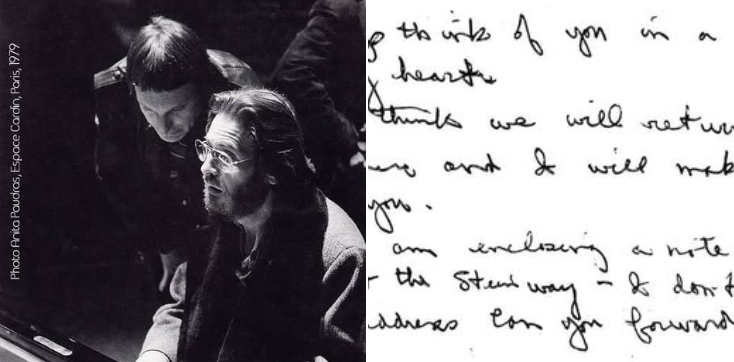 Photo Anita Paudras, Espace Cardin, Paris, 1979
think of you in a
hearts
think we will retur
and I will mak
you.
am enclosing a note
the Steinway - I don't
address Can you forward